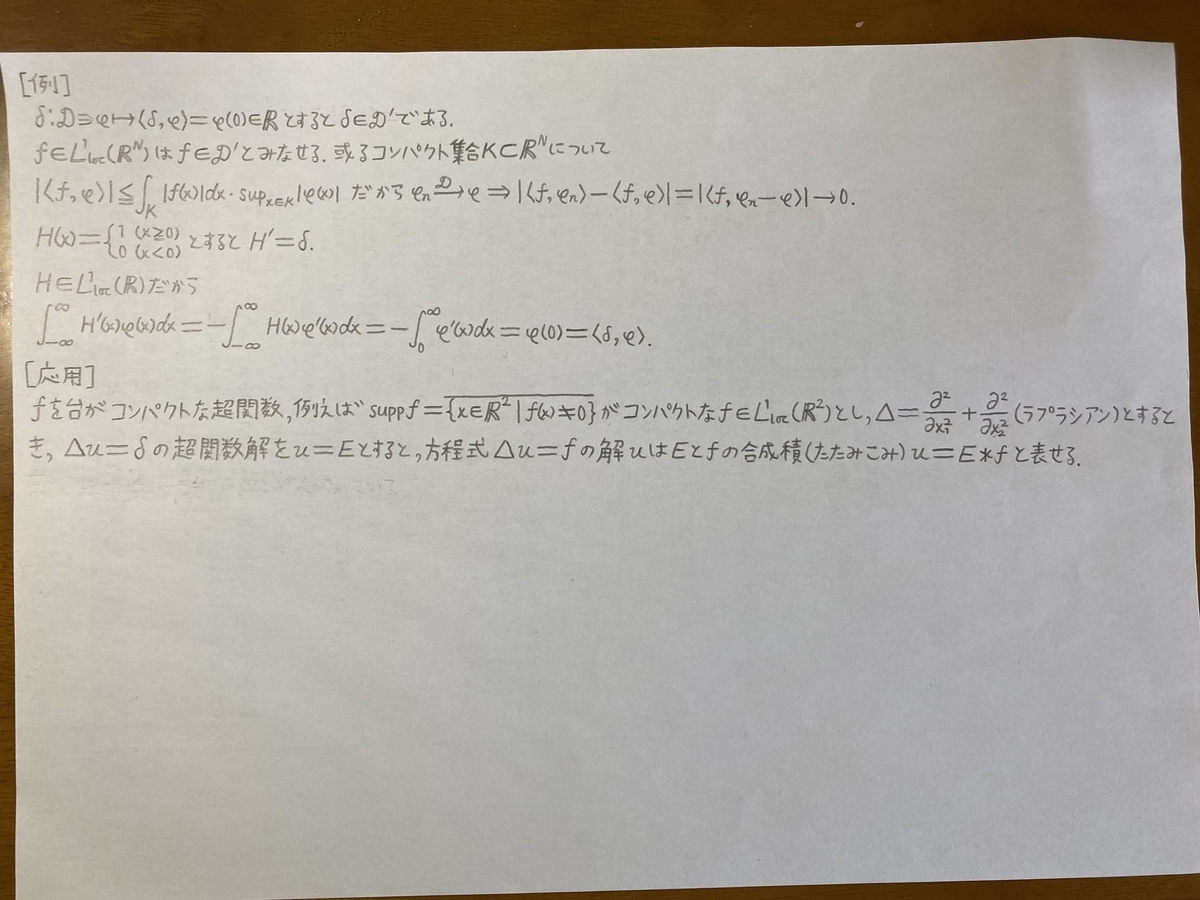 [例]
δ:𝒟∋φ↦⟨δ,φ⟩=φ(0)∈ℝとするとδ∈𝒟'である.
f∈L¹loc(ℝᴺ)はf∈𝒟'とみなせる. 或るコンパクト集合K⊂ℝᴺについて
|⟨f,φ⟩|≦∫_K |f(x)|dx・sup_{x∈K}|φ(x)| だから φₙ→^𝒟 φ ⇒ |⟨f,φₙ⟩−⟨f,φ⟩|=|⟨f,φₙ−φ⟩|→0.
H(x)={1 (x≧0) 0 (x<0) とすると H'=δ.
H∈L¹loc(ℝ)だから
∫_{-∞}^{∞} H'(x)φ(x)dx=−∫_{-∞}^{∞} H(x)φ'(x)dx=−∫_0^∞ φ'(x)dx=φ(0)=⟨δ,φ⟩.
[応用]
fを台がコンパクトな超関数,例えば supp f=\overline{{x∈ℝ²|f(x)≠0}}がコンパクトなf∈L¹loc(ℝ²)とし,Δ=∂²/∂x₁²+∂²/∂x₂²(ラプラシアン)とすると
き, Δu=δの超関数解をu=Eとすると,方程式Δu=fの解uはEとfの合成積(たたみこみ) u=E*fと表せる.